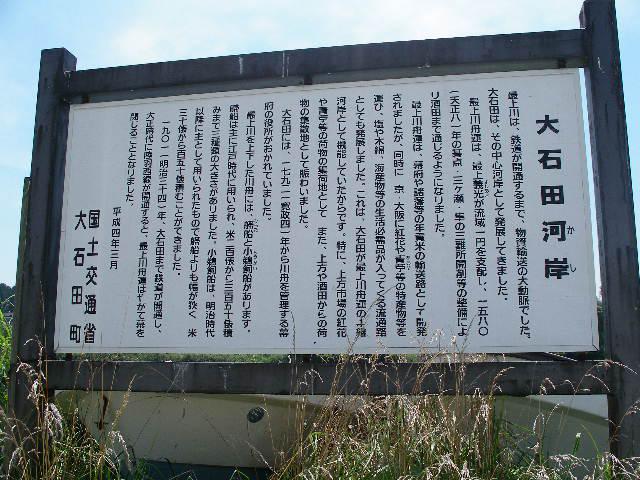 大石田河岸
かし
最上川は、鉄道が開通するまで、物資輸送の大動脈でした。
大石田は、その中心河岸として発展してきました。
最上川舟運は、最上義光が流域一円を支配し、一五八〇
(天正八)年の碁点・三ヶ瀬・隼の三難所開削等の整備によ
り酒田まで通じるようになりました。
最上川舟運は、幕府や諸藩等の年貢米の輸送路として開発
されましたが、同時に、京・大阪に紅花や青苧等の特産物等を
運び、塩や木綿、海産物等の生活必需品が入ってくる流通路
としても発展しました。これは、大石田が最上川舟運の
河岸として機能していたからです。特に、上方市場の紅花
や青苧等の荷物の集荷地として、また、上方や酒田からの荷
物の集散地として賑わいました。
大石田には、一七九二(寛政四)年から川舟を管理する幕
府の役所がおかれていました。
最上川を上下した川舟には、艜船と小鵜飼船があります。
艜船は主に江戸時代に用いられ、米二百俵から三百五十俵積
みまで三種類の大きさがありました。小鵜飼船は、明治時代
以降に主として用いられたもので艜船よりも幅が狭く、米
三十俵から百五十俵積むことができました。
一九〇一(明治三十四)年、大石田まで鉄道が開通し、
大正時代に陸羽西線が開通すると、最上川舟運はやがて幕を
閉じることとなりました。
平成四年三月
国土交通省
大石田町